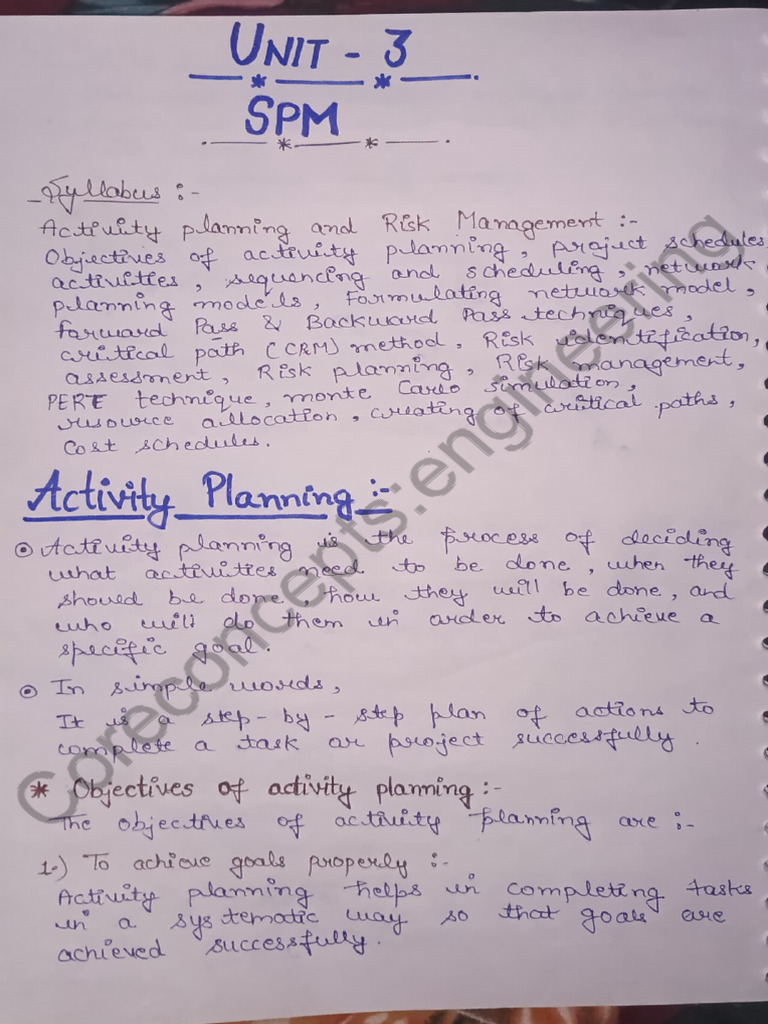 UNIT - 3
SPM
Syllabus :-
Activity planning and Risk Management :-
Objectives of activity planning, project schedules,
activities, sequencing and scheduling, network
planning models, Formulating network model,
forward Pass & Backward Pass techniques,
critical path (CRM) method, Risk identification,
assessment, Risk planning, Risk management,
PERT technique, monte Carlo simulation,
resource allocation, creating of critical paths,
Cost schedules.
Activity Planning :-
Activity planning is the process of deciding
what activities need to be done, when they
should be done, how they will be done, and
who will do them in order to achieve a
specific goal.
In simple words,
It is a step-by-step plan of actions to
complete a task or project successfully.
* Objectives of activity planning :-
The objectives of activity planning are :-
1.) To achieve goals properly :-
Activity planning helps in completing tasks
in a systematic way so that goals are
achieved successfully.
Coreconcepts:engineering